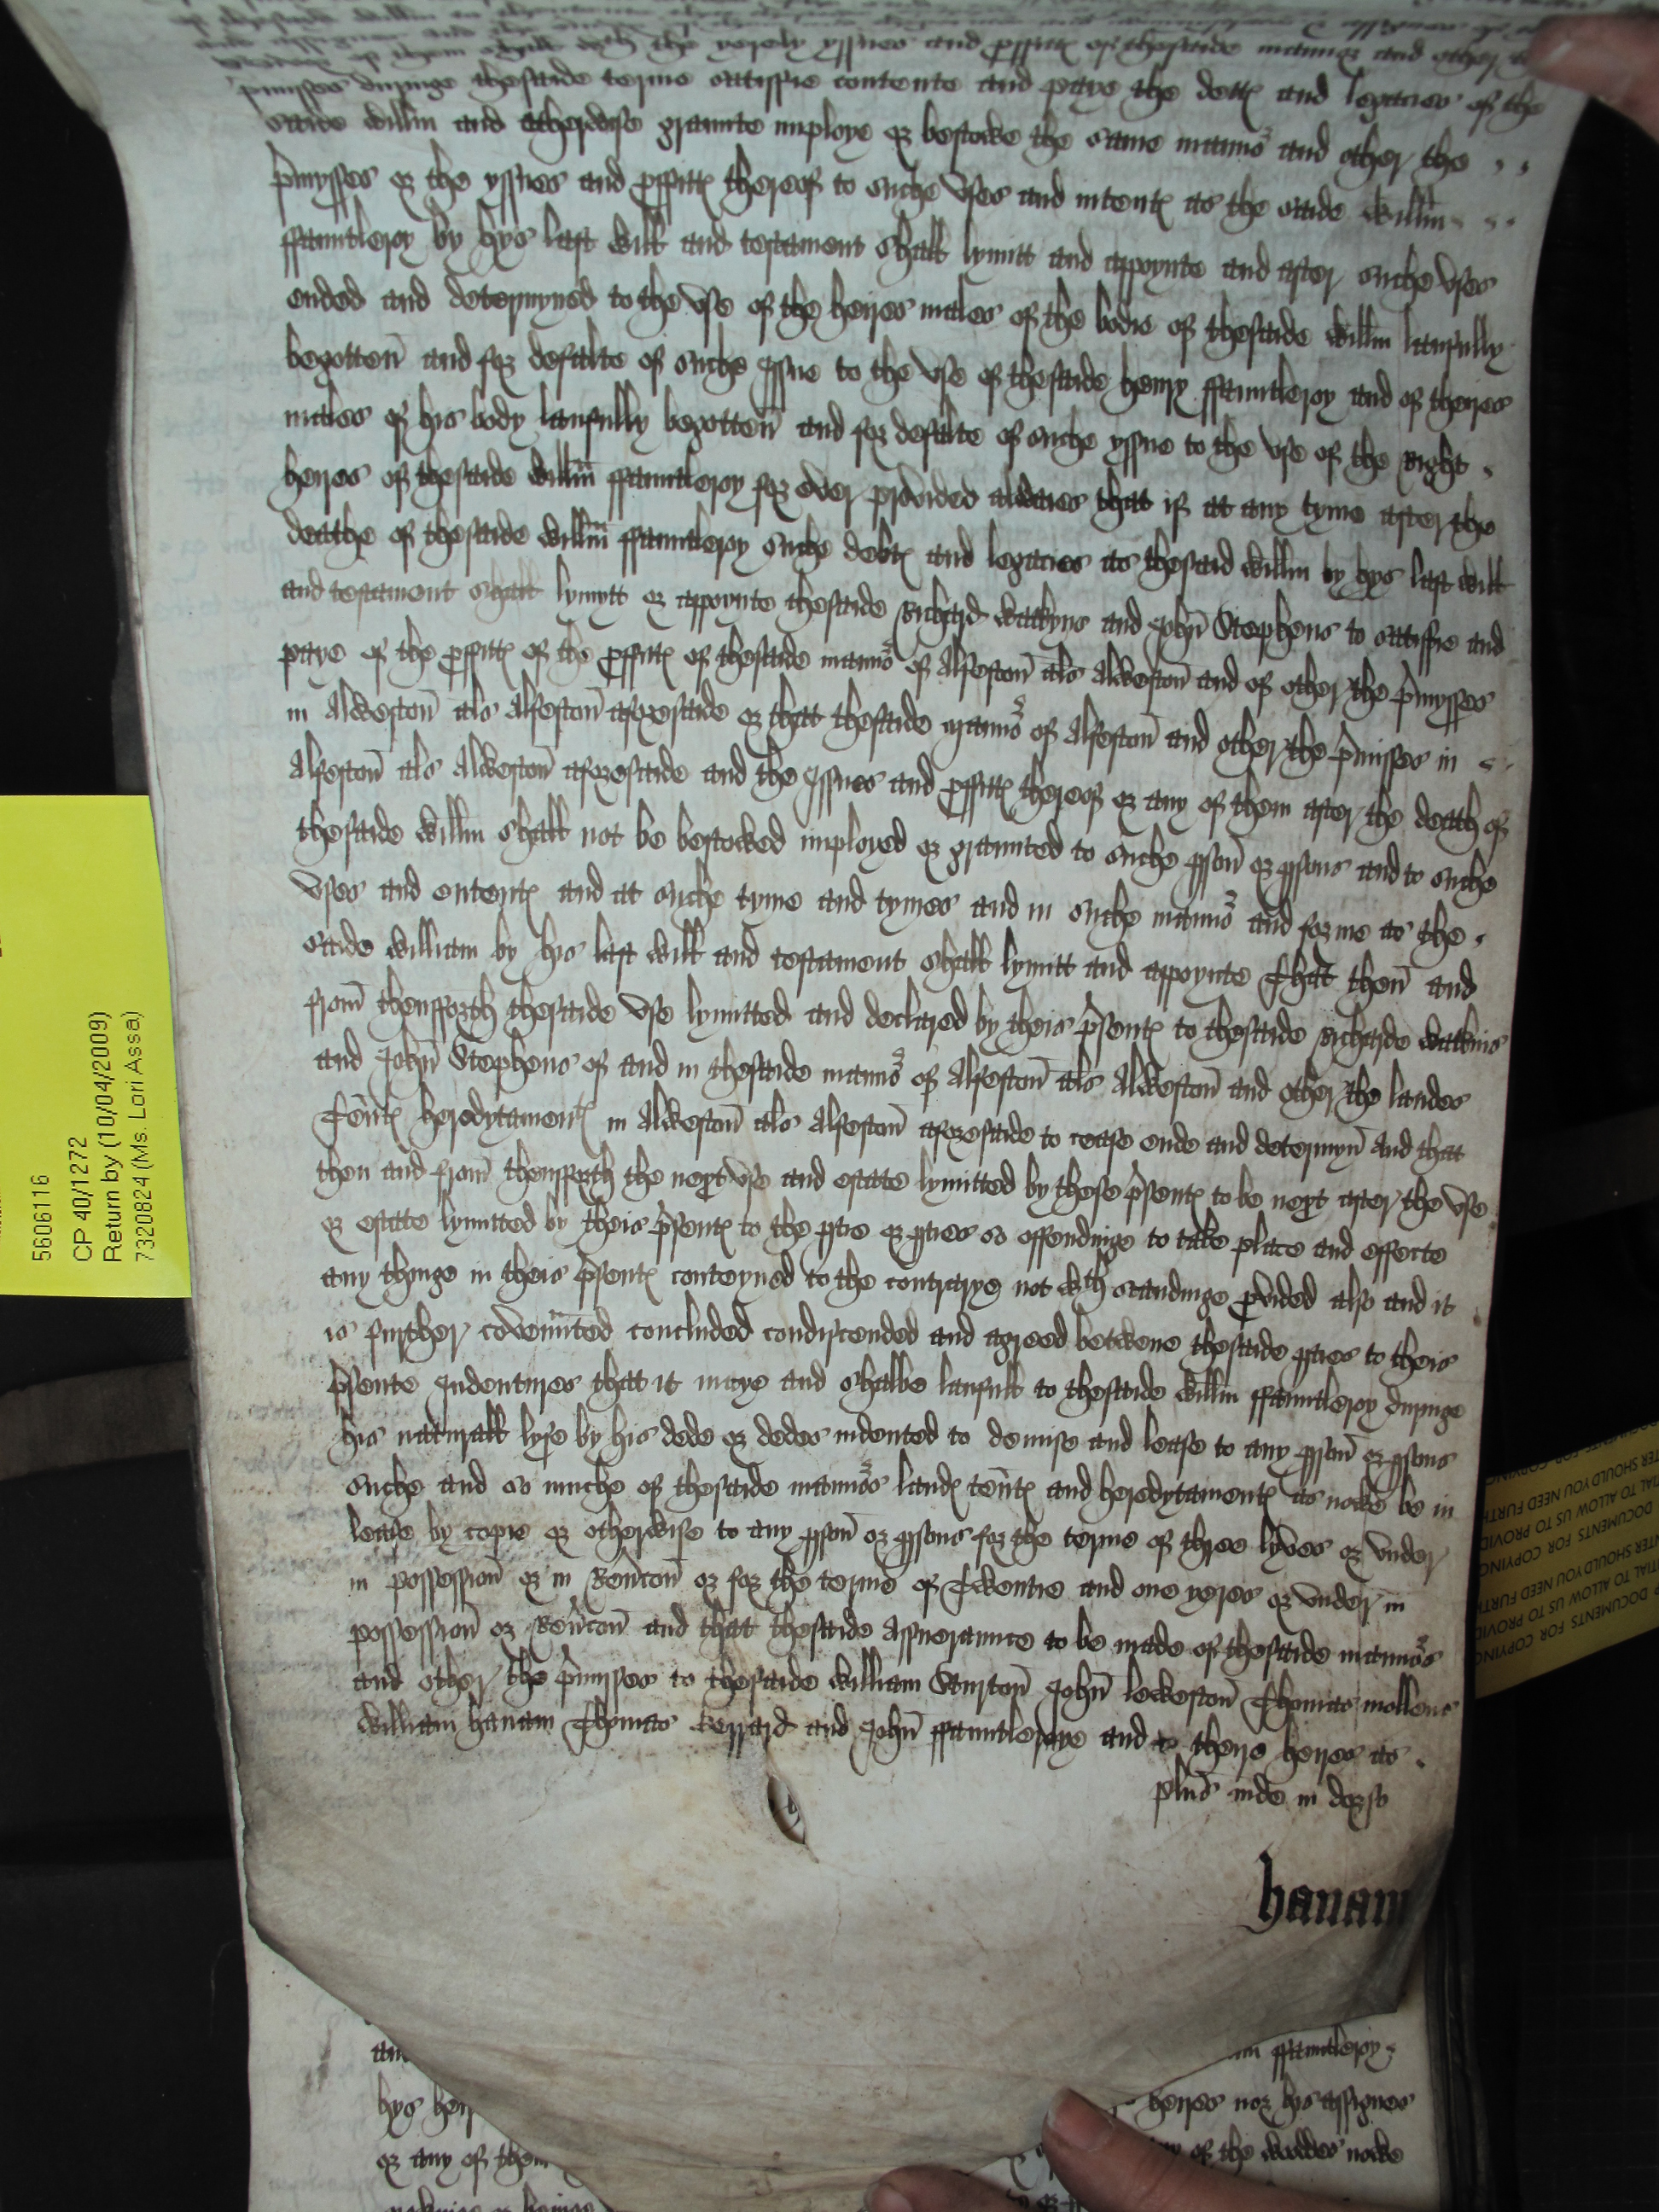 the yerely yssues and pffittꝭ of thesaide mannoʳ and other
pmisses duringe thesaide terme satisfie contente and paye the dettꝭ and legacies of the
saide Willm and otherwise graunte imploye or bestowe the same mannoʳ and other the
pmysses or the yssues and pffittꝭ thereof to suche vses and intentꝭ as the saide Willm
ffauntleroy by hys last Will and testament shall lymitt and appoynte and after suche vses
ended and determyned to the vse of the heires males of the bodie of thesaide Willm laufully
begotten and for defalte of suche Issue to the vse of thesaide henry ffauntleroy and of theires
males of his body laufully begotten and for defalte of suche yssue to the vse of the Right
heires of thesaide Willm ffauntleroy for ever provided alwaies that if at any tyme after the
deathe of thesaide Willm ffauntleroy suche debtꝭ and legacies as thesaid Willm by hys last Will
and testament shall lymytt or appoynte thesaide Richard Watkyns and John Stephens to satisfie and
paye of the pffittꝭ of the pffittꝭ of thesaide mannoʳ of Alfeston als Alweston and of other the pmysses
in Alweston als Alfeston aforesaide or that thesaide mannoʳ of Alfeston and other the pmisses in
Alfeston als Alweston aforesaide and the Issues and pffittꝭ thereof or any of them after the death of
thesaide Willm shall not be bestowed imployed or graunted to suche pson or psons and to suche
vses and ententꝭ and at suche tyme and tymes and in suche manner and forme as the
saide William by his last Will and testament shall lymitt and appoynte That then and
from thensforth thesaide vse lymitted and declared by theis psentꝭ to thesaide Richarde Watkins
and John Stephens of and in thesaide mannoʳ of Alfeston als Alweston and other the landes
Tentꝭ heredytamentꝭ in Alweston als Alfeston aforesaide to cease ende and determyn And that
then and from thensforth the next vse and estate lymitted by these psentꝭ to be next after the vse
or estate lymitted by theis psentꝭ to the ptie or pties so offendinge to take place and effecte
any thinge in theis psentꝭ conteyned to the contrarye not wᵗʰstandinge pvided also and it
is further covennted concluded condiscended and agreed betwene thesaide pties to theis
psente Indentures that it maye and shalbe laufull to thesaide Willm ffauntleroy duringe
his naturall lyfe by his dede or dedes indented to demise and lease to any pson or psons
suche and so muche of thesaide mannoʳs landꝭ tentꝭ and heredytamentꝭ as nowe be in
lease by copie or otherwise to any pson or psons for the terme of three lyves or vnder
in possession or in Revcon or for the terme of Twentie and one yeres or vnder in
possession or Revcon and that thesaide Assueraunce to be made of thesaide mannoʳs
and other the pmisses to thesaide William Thurton John leweston Thomas mollens
William hanam Thomas Gerrard and John ffauntleraye and to theire heires as
plus inde in dorso
hanam
ffauntleroy
hys heir
heires nor his assignes
or any of them
of the woddes nowe
5606116
CP 40/1272
Return by (10/04/2009)
7320824 (Ms. Lori Assa)